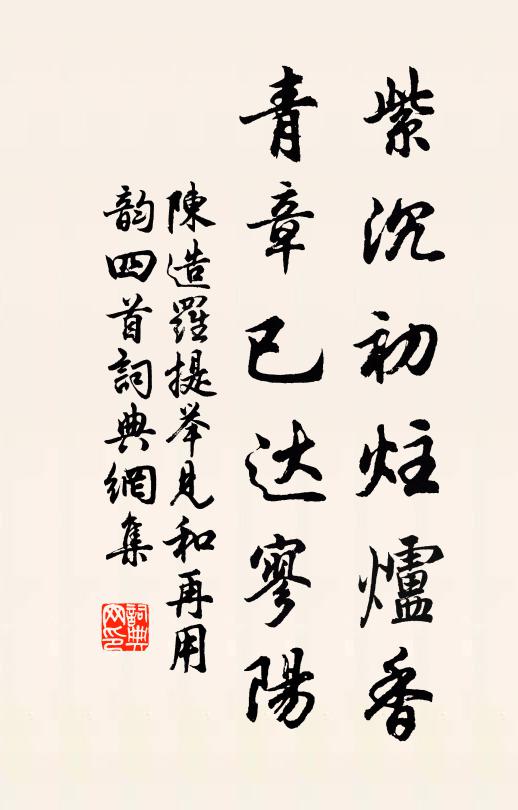 紫沉初炷爐香
青章已达寥陽
陳造羅提举見和再用
韵四首詞典網集
詞典
网印